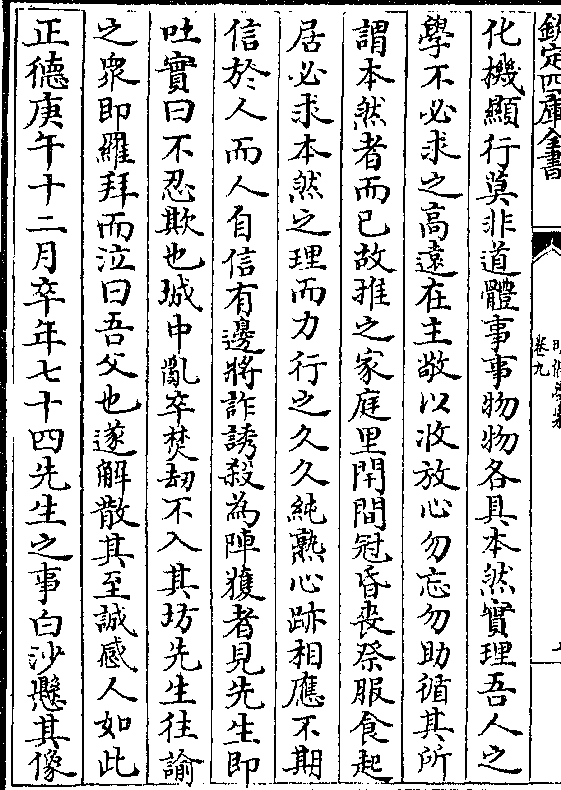 欽定四庫全書
卷九
化機顯行莫非道體事事物物各具本然實理吾人之
學不必求之高遠在主敬以收放心勿忘勿助循其所
謂本然者而已故推之家庭里閈間冠昏喪祭服食起
居必求本然之理而力行之久久純熟心跡相應不期
信於人而人自信有邊將詐誘殺為陣獲者見先生即
吐實曰不忍欺也城中亂卒焚刼不入其坊先生往諭
之衆即羅拜而泣曰吾父也遂解散其至誠感人如此
正德庚午十二月卒年七十四先生之事白沙懸其像